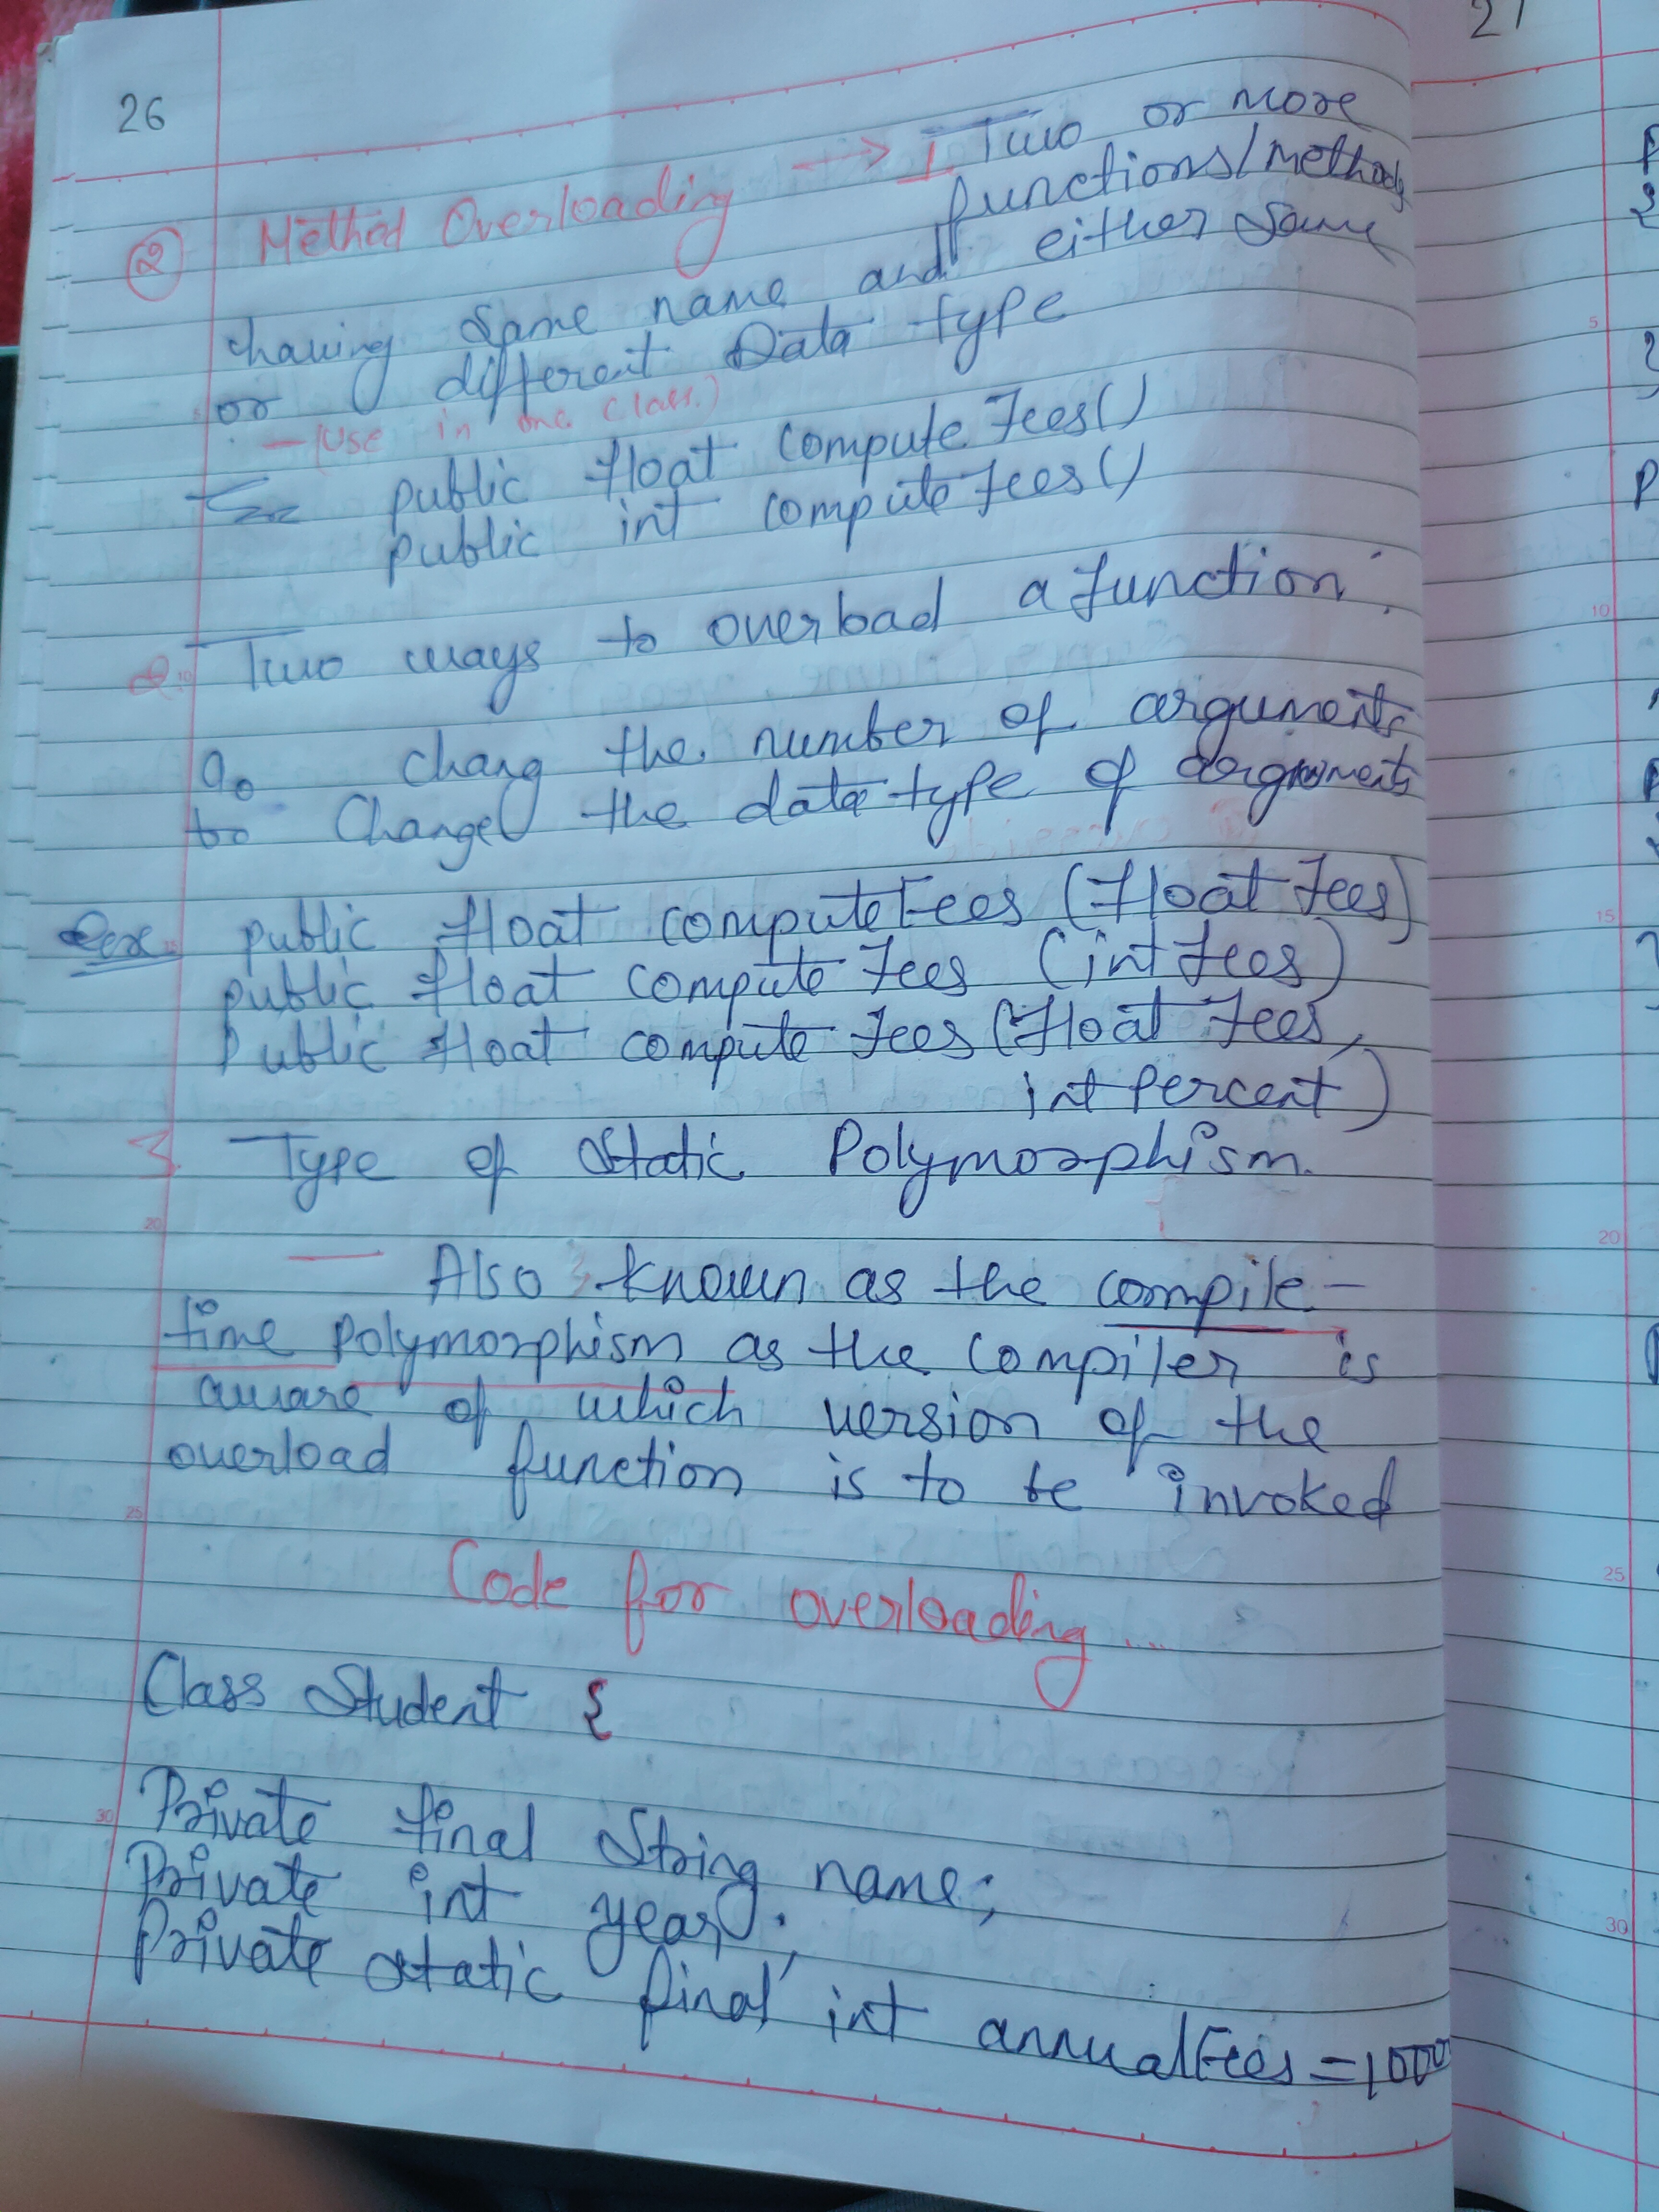 26
② Method Overloading → 1. Two or more
functions/Methods
having same name and either same
or different Data type
— (Use in one class.)
public float computeFees()
public int computeFees()
2. Two ways to overload a function:
a. chang the number of arguments
b. Change the data type of argruments
ex public float computeFees (float fees)
public float compute fees (int fees)
Public float compute fees (float fees,
int percent)
3. Type of static Polymorphism.
— Also known as the compile-
time polymorphism as the compiler is
aware of which version of the
overload function is to be invoked
Code for overloading ....
Class Student {
Private final String name;
Private int year;
Private static final int annualFees = 1000
27